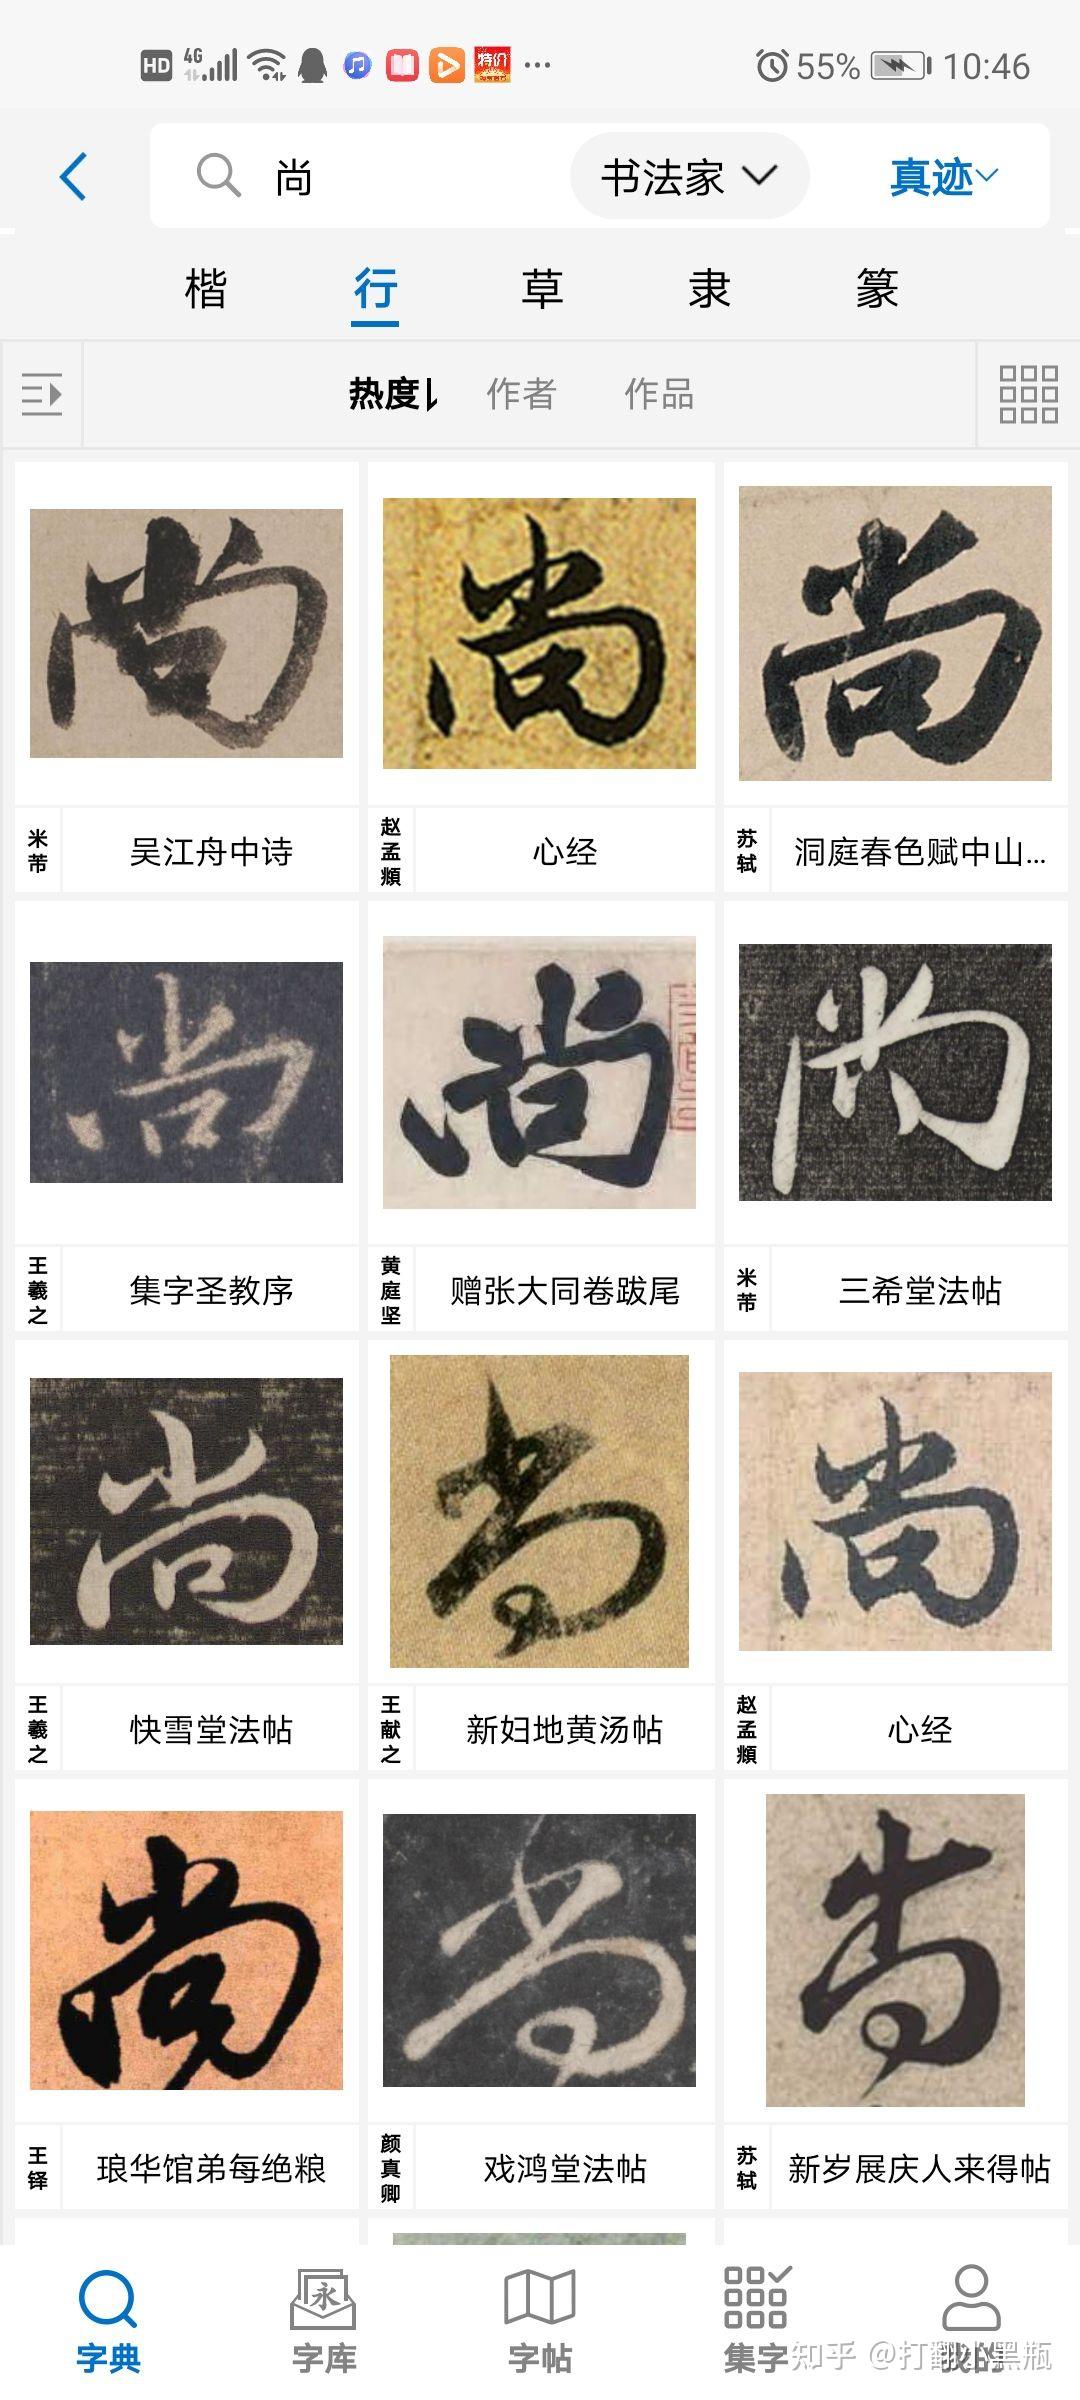 HD 4G 特价 ... 55% 10:46
尚 书法家 真迹
楷 行 草 隶 篆
热度 作者 作品
尚 尚 尚
米芾 吴江舟中诗 赵孟頫 心经 苏轼 洞庭春色赋中山...
尚 尚 尚
王羲之 集字圣教序 黄庭坚 赠张大同卷跋尾 米芾 三希堂法帖
尚 尚 尚
王羲之 快雪堂法帖 王献之 新妇地黄汤帖 赵孟頫 心经
尚 尚 尚
王铎 琅华馆弟每绝粮 颜真卿 戏鸿堂法帖 苏轼 新岁展庆人来得帖
永
字典 字库 字帖 集字 我的
知乎 @打翻小黑瓶